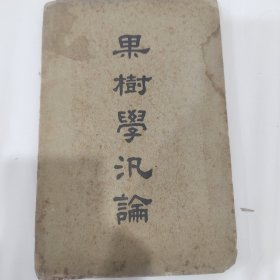 果樹學汎論